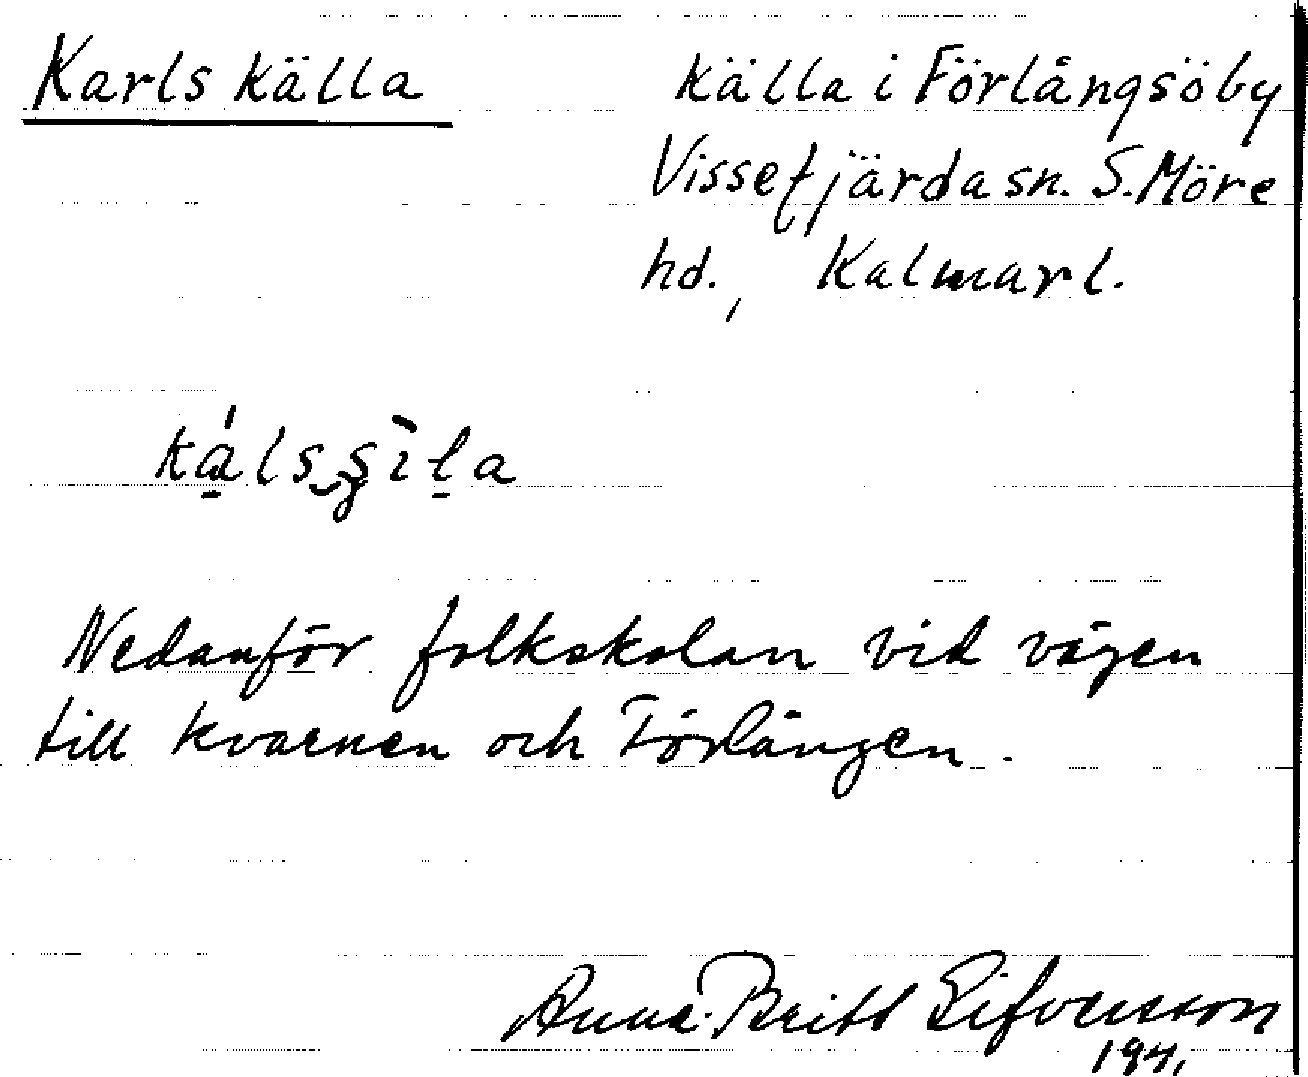 Karls källa
källa i Förlångsöby
Vissefjärda sn. S. Möre
hd., Kalmar l.
Nedanför folkskolan vid vägen
till kvarnen och Förlången.
Anna-Britt Sifversson
1941